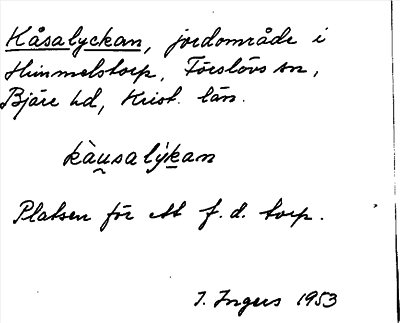 Kåsalyckan, jordområde i
Himmelstorp, Förslövs sn,
Bjäre hd, Krist. län.
kàu̯salýkan
Platsen för ett f.d. torp.
I. Ingers 1953